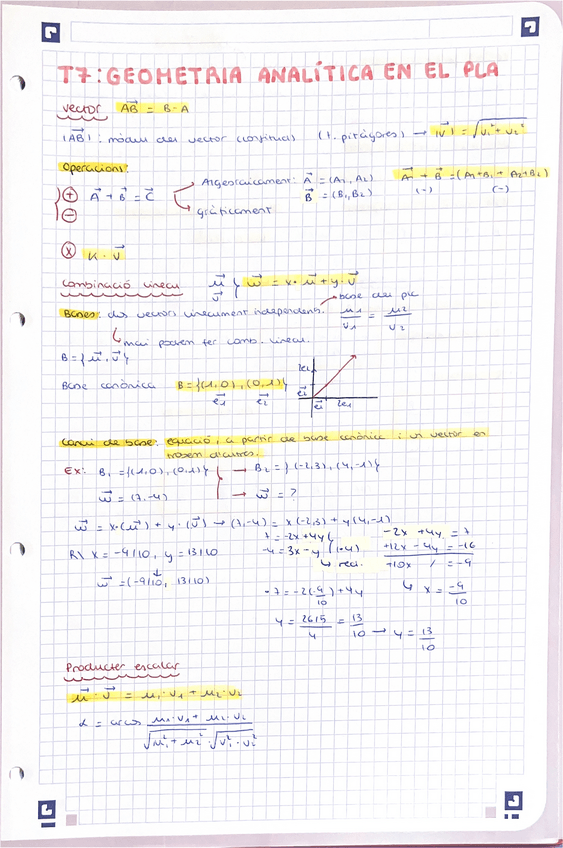 T7: GEOMETRIA ANALÍTICA EN EL PLA
vector AB = B - A
|AB|: mòdul del vector (longitud) (t. pitàgores) → |V| = √v₁² + v₂²
Operacions:
+ A + B = C
-
Algebraicament: A = (A₁, A₂)
B = (B₁, B₂)
A + B = (A₁+B₁ + A₂+B₂)
(-) (-)
gràficament
x K · v
Combinació lineal u v } w = x · u + y · v
base del pla
Bases: dos vectors linealment independents. u₁/v₁ = u₂/v₂
mai podrem fer comb. lineal.
B = {u, v}
Base canònica B = {(1,0), (0,1)}
e₁ e₂
2e₂
e₂
e₁ 2e₁
Canvi de base: equació, a partir de base canònica i un vector en
trobem d'altres.
Ex: B₁ = {(1,0), (0,1)} → B₂ = {(-2,3), (4,-1)}
w = (7,-4) → w = ?
w = x·(u) + y·(v) → (7,-4) = x(-2,3) + y(4,-1)
7 = -2x+4y
-4 = 3x-y (·4)
↳ red.
-2x + 4y = 7
+12x - 4y = -16
+10x / = -9
↳ x = -9/10
R\ x = -9/10, y = 13/10
w = (-9/10, 13/10)
-7 = -2(-9/10) + 4y
y = 26/5/4 = 13/10 → y = 13/10
Producter escalar
u · v = u₁·v₁ + u₂·v₂
α = arcos u₁·v₁ + u₂·v₂ / √u₁² + u₂² · √v₁² · v₂²